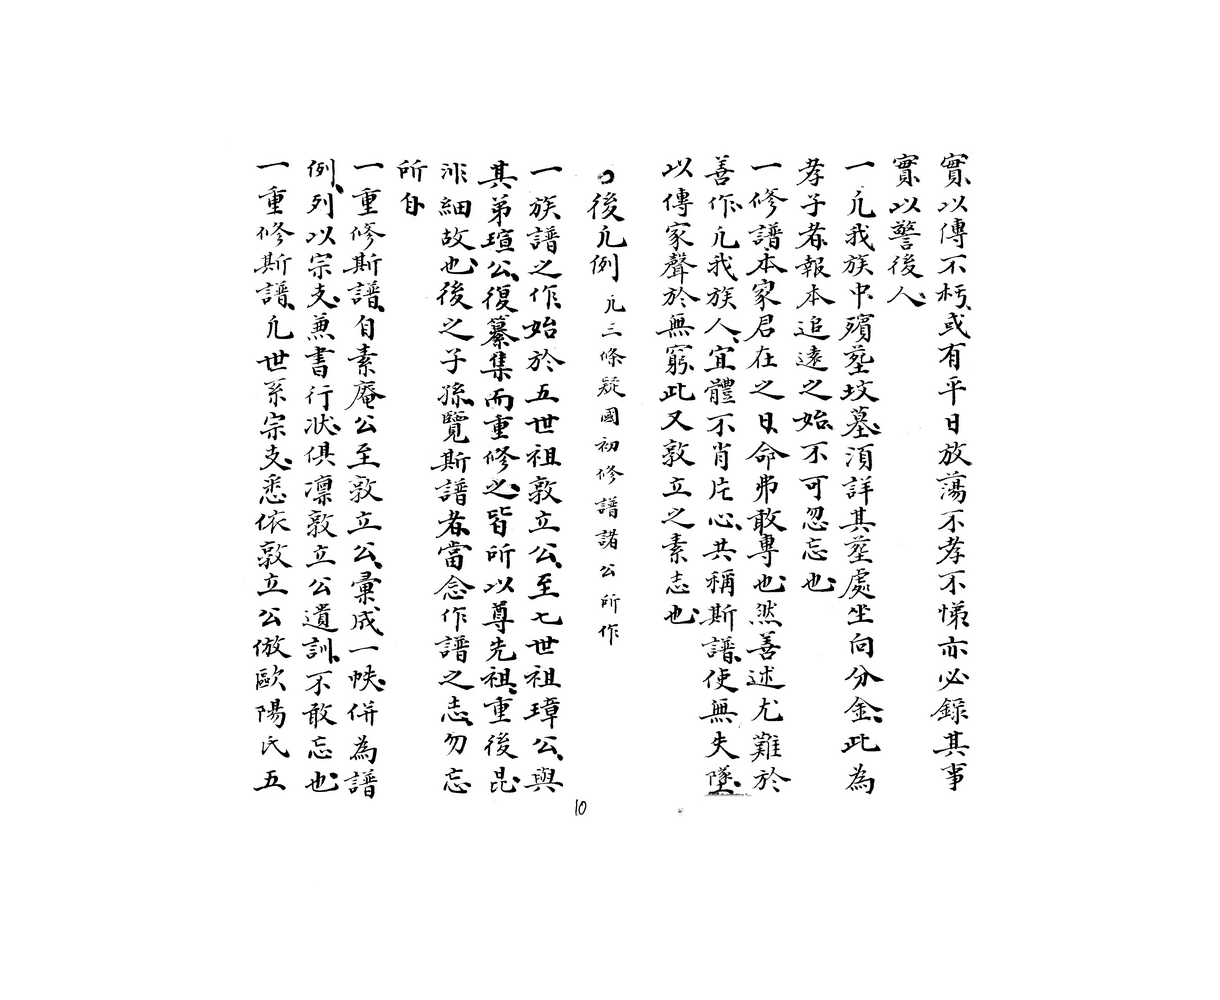 實以傳不朽、或有平日放蕩不孝不悌亦必錄其事
實、以警後人、
一凢我族中殯塟坟墓、湏詳其塟處坐向分金、此為
孝子者、報本追遠之始、不可忽忘也、
一修譜、本家君在之日、命弗敢專也、然善述尤難於
善作、凢我族人、宜體不肖片心、共稱斯譜、使無失墜、
以傳家聲於無窮、此又敦立之素志也、
後凢例 凢三條疑國初修譜諸公所作
一族譜之作、始於五世祖敦立公、至七世祖璋公、與
其弟瑄公、復纂集而重修之、皆所以尊先祖、重後昆、
非細故也、後之子孫、覽斯譜者、當念作譜之志、勿忘
所自
一重修斯譜、自素庵公至敦立公、彙成一帙、併為譜
例、列以宗支、兼書行狀、俱凛敦立公遺訓、不敢忘也
一重修斯譜、凢世系宗支、悉依敦立公倣歐陽氏五
10